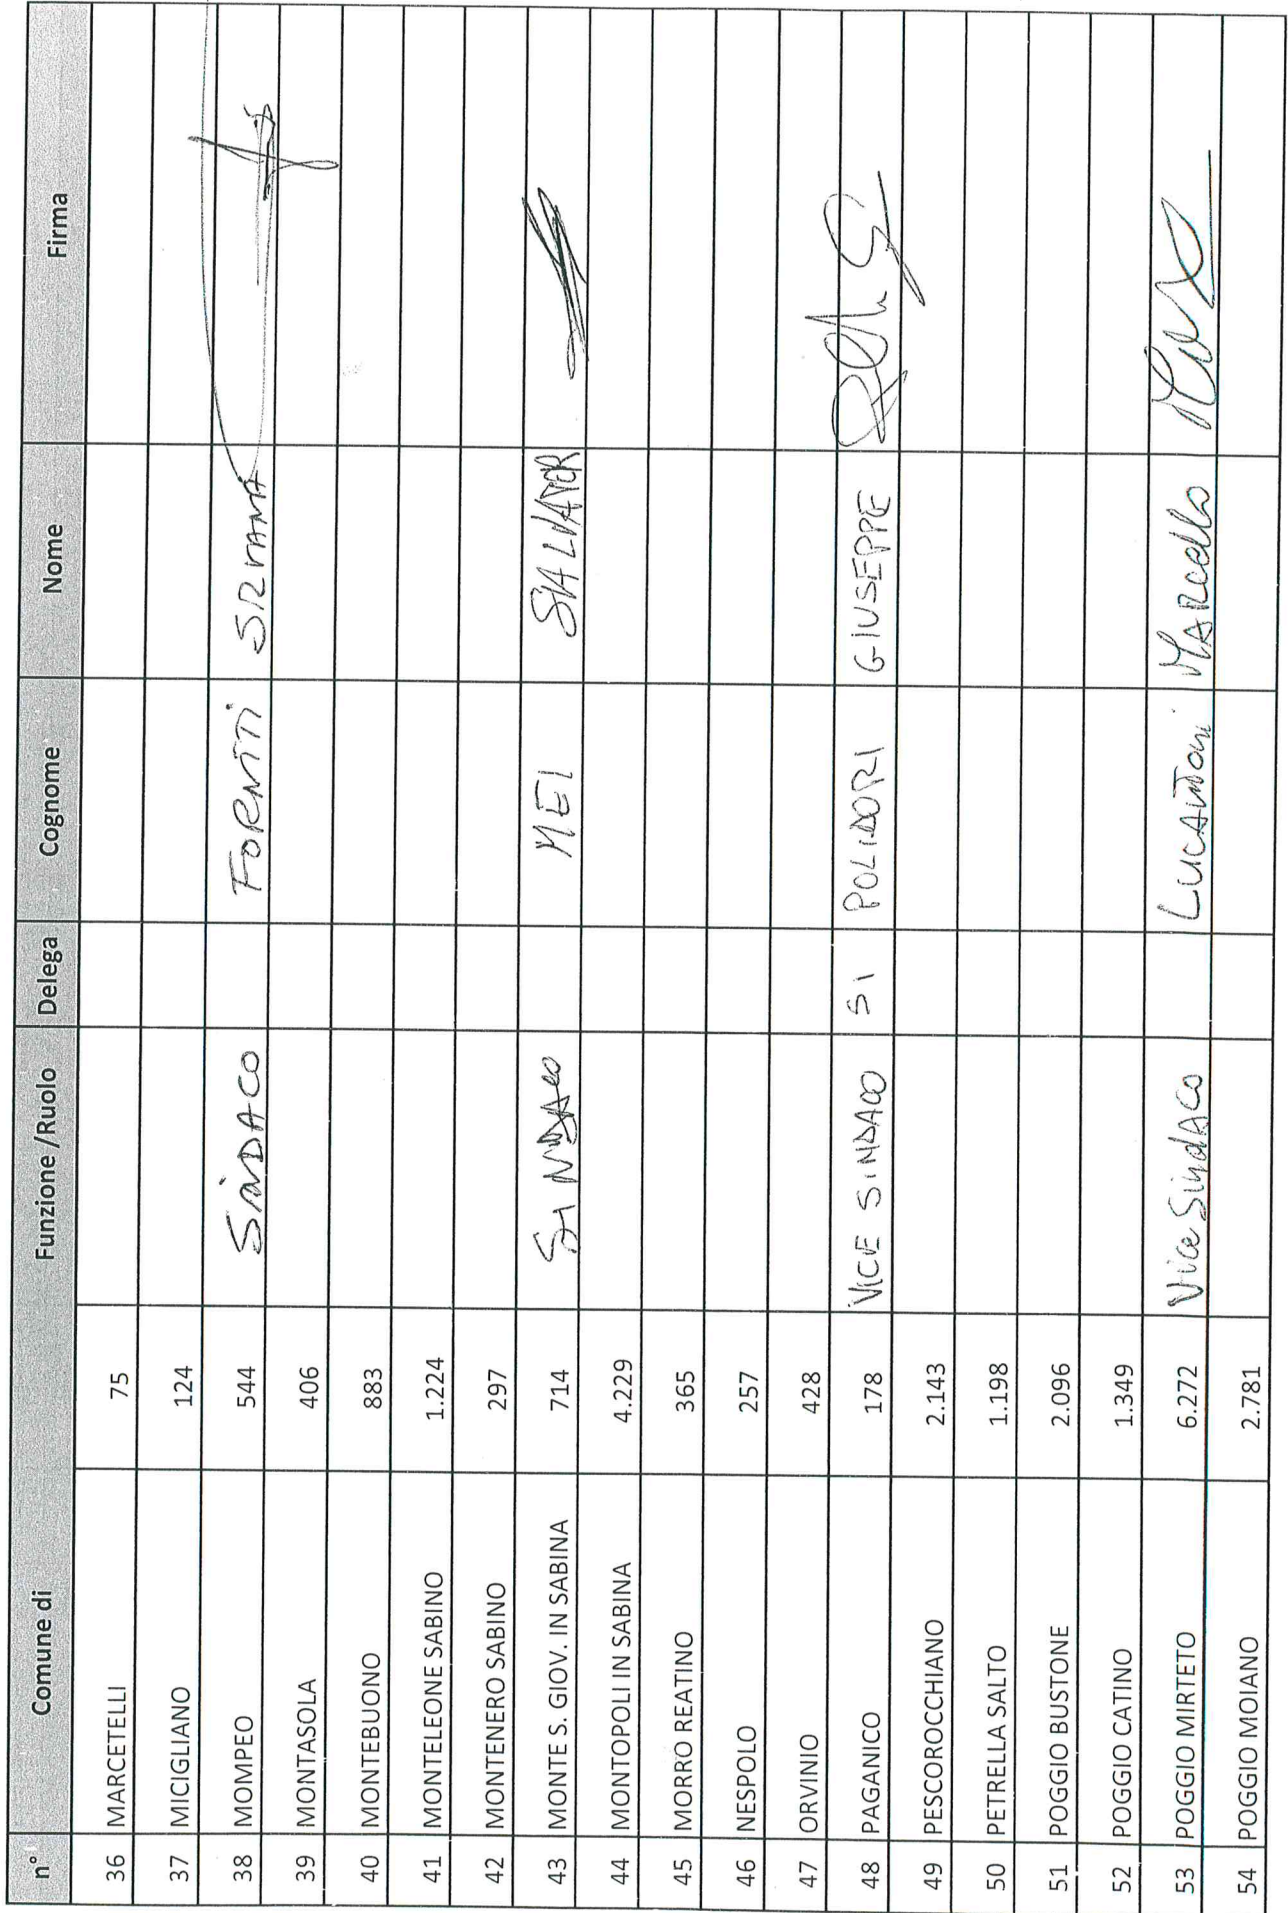 n° Comune di Funzione /Ruolo Delega Cognome Nome Firma
36 MARCETELLI 75
37 MICIGLIANO 124
38 MOMPEO 544 SINDACO FORNITI
39 MONTASOLA 406
40 MONTEBUONO 883
41 MONTELEONE SABINO 1.224
42 MONTENERO SABINO 297
43 MONTE S. GIOV. IN SABINA 714 SINDACO MEI SALVATOR
44 MONTOPOLI IN SABINA 4.229
45 MORRO REATINO 365
46 NESPOLO 257
47 ORVINIO 428
48 PAGANICO 178 VICE SINDACO SI POLIDORI GIUSEPPE
49 PESCOROCCHIANO 2.143
50 PETRELLA SALTO 1.198
51 POGGIO BUSTONE 2.096
52 POGGIO CATINO 1.349
53 POGGIO MIRTETO 6.272 Vice SindACo LUCANTONI MARcello
54 POGGIO MOIANO 2.781